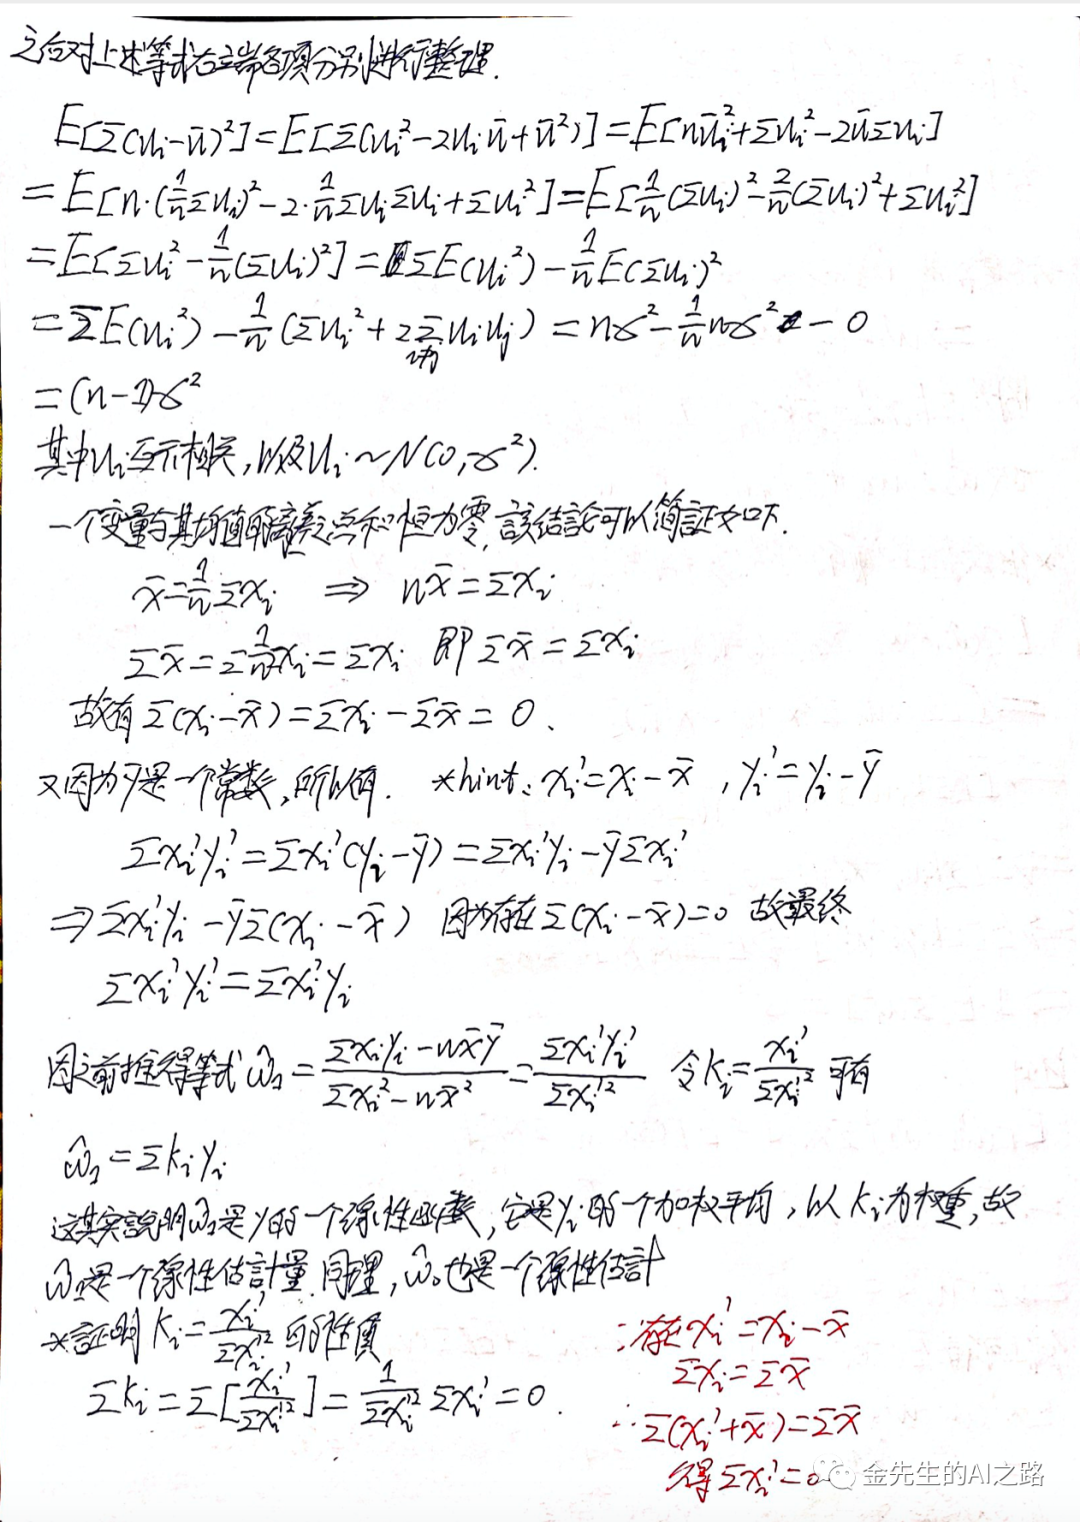 之后对上述等式右立端各项分别进行整理.
E[Σ(u_i-ū)²]=E[Σ(u_i²-2u_iū+ū²)]=E[nū_i²+Σu_i²-2ūΣu_i]
=E[n·(1/n Σu_i)²-2·1/n Σu_iΣu_i+Σu_i²]=E[1/n(Σu_i)²-2/n(Σu_i)²+Σu_i²]
=E[Σu_i²-1/n(Σu_i)²]=ΣE(u_i²)-1/n E(Σu_i)²
=ΣE(u_i²)-1/n(Σu_i²+2Σ_{i≠j}u_iu_j)=nσ²-1/n nσ²-0
=(n-1)σ²
其中u_i互不相关,以及u_i~N(0,σ²).
一个变量与其均值的离差总和恒为零,該结論可以简証如下.
x̄=1/n Σx_i ⇒ nx̄=Σx_i
Σx̄=Σ1/n Σx_i=Σx_i 即Σx̄=Σx_i
故有Σ(x_i-x̄)=Σx_i-Σx̄=0.
又因为ȳ是一个常数,所以有. *hint: x_i'=x_i-x̄ , y_i'=y_i-ȳ
Σx_i'y_i'=Σx_i'(y_i-ȳ)=Σx_i'y_i-ȳΣx_i'
⇒Σx_i'y_i-ȳΣ(x_i-x̄) 因为存在Σ(x_i-x̄)=0 故最终
Σx_i'y_i'=Σx_i'y_i
因之前推得等式ŵ₁=(Σx_iy_i-nx̄ȳ)/(Σx_i²-nx̄²)=Σx_i'y_i'/Σx_i'² 令k_i=x_i'/Σx_i'² 可有
ŵ₁=Σk_iy_i
这其实説明ŵ₁是y的一个線性函数,它是y_i的一个加权平均,以k_i为权重,故
ŵ₁是一个線性估計量.同理,ŵ₀也是一个線性估計
*証明k_i=x_i'/Σx_i'²的性質
Σk_i=Σ[x_i'/Σx_i'²]=1/Σx_i'² Σx_i'=0.
∵存在x_i'=x_i-x̄
Σx_i=Σx̄
∴Σ(x_i'+x̄)=Σx̄
得Σx_i'=0
金先生的AI之路